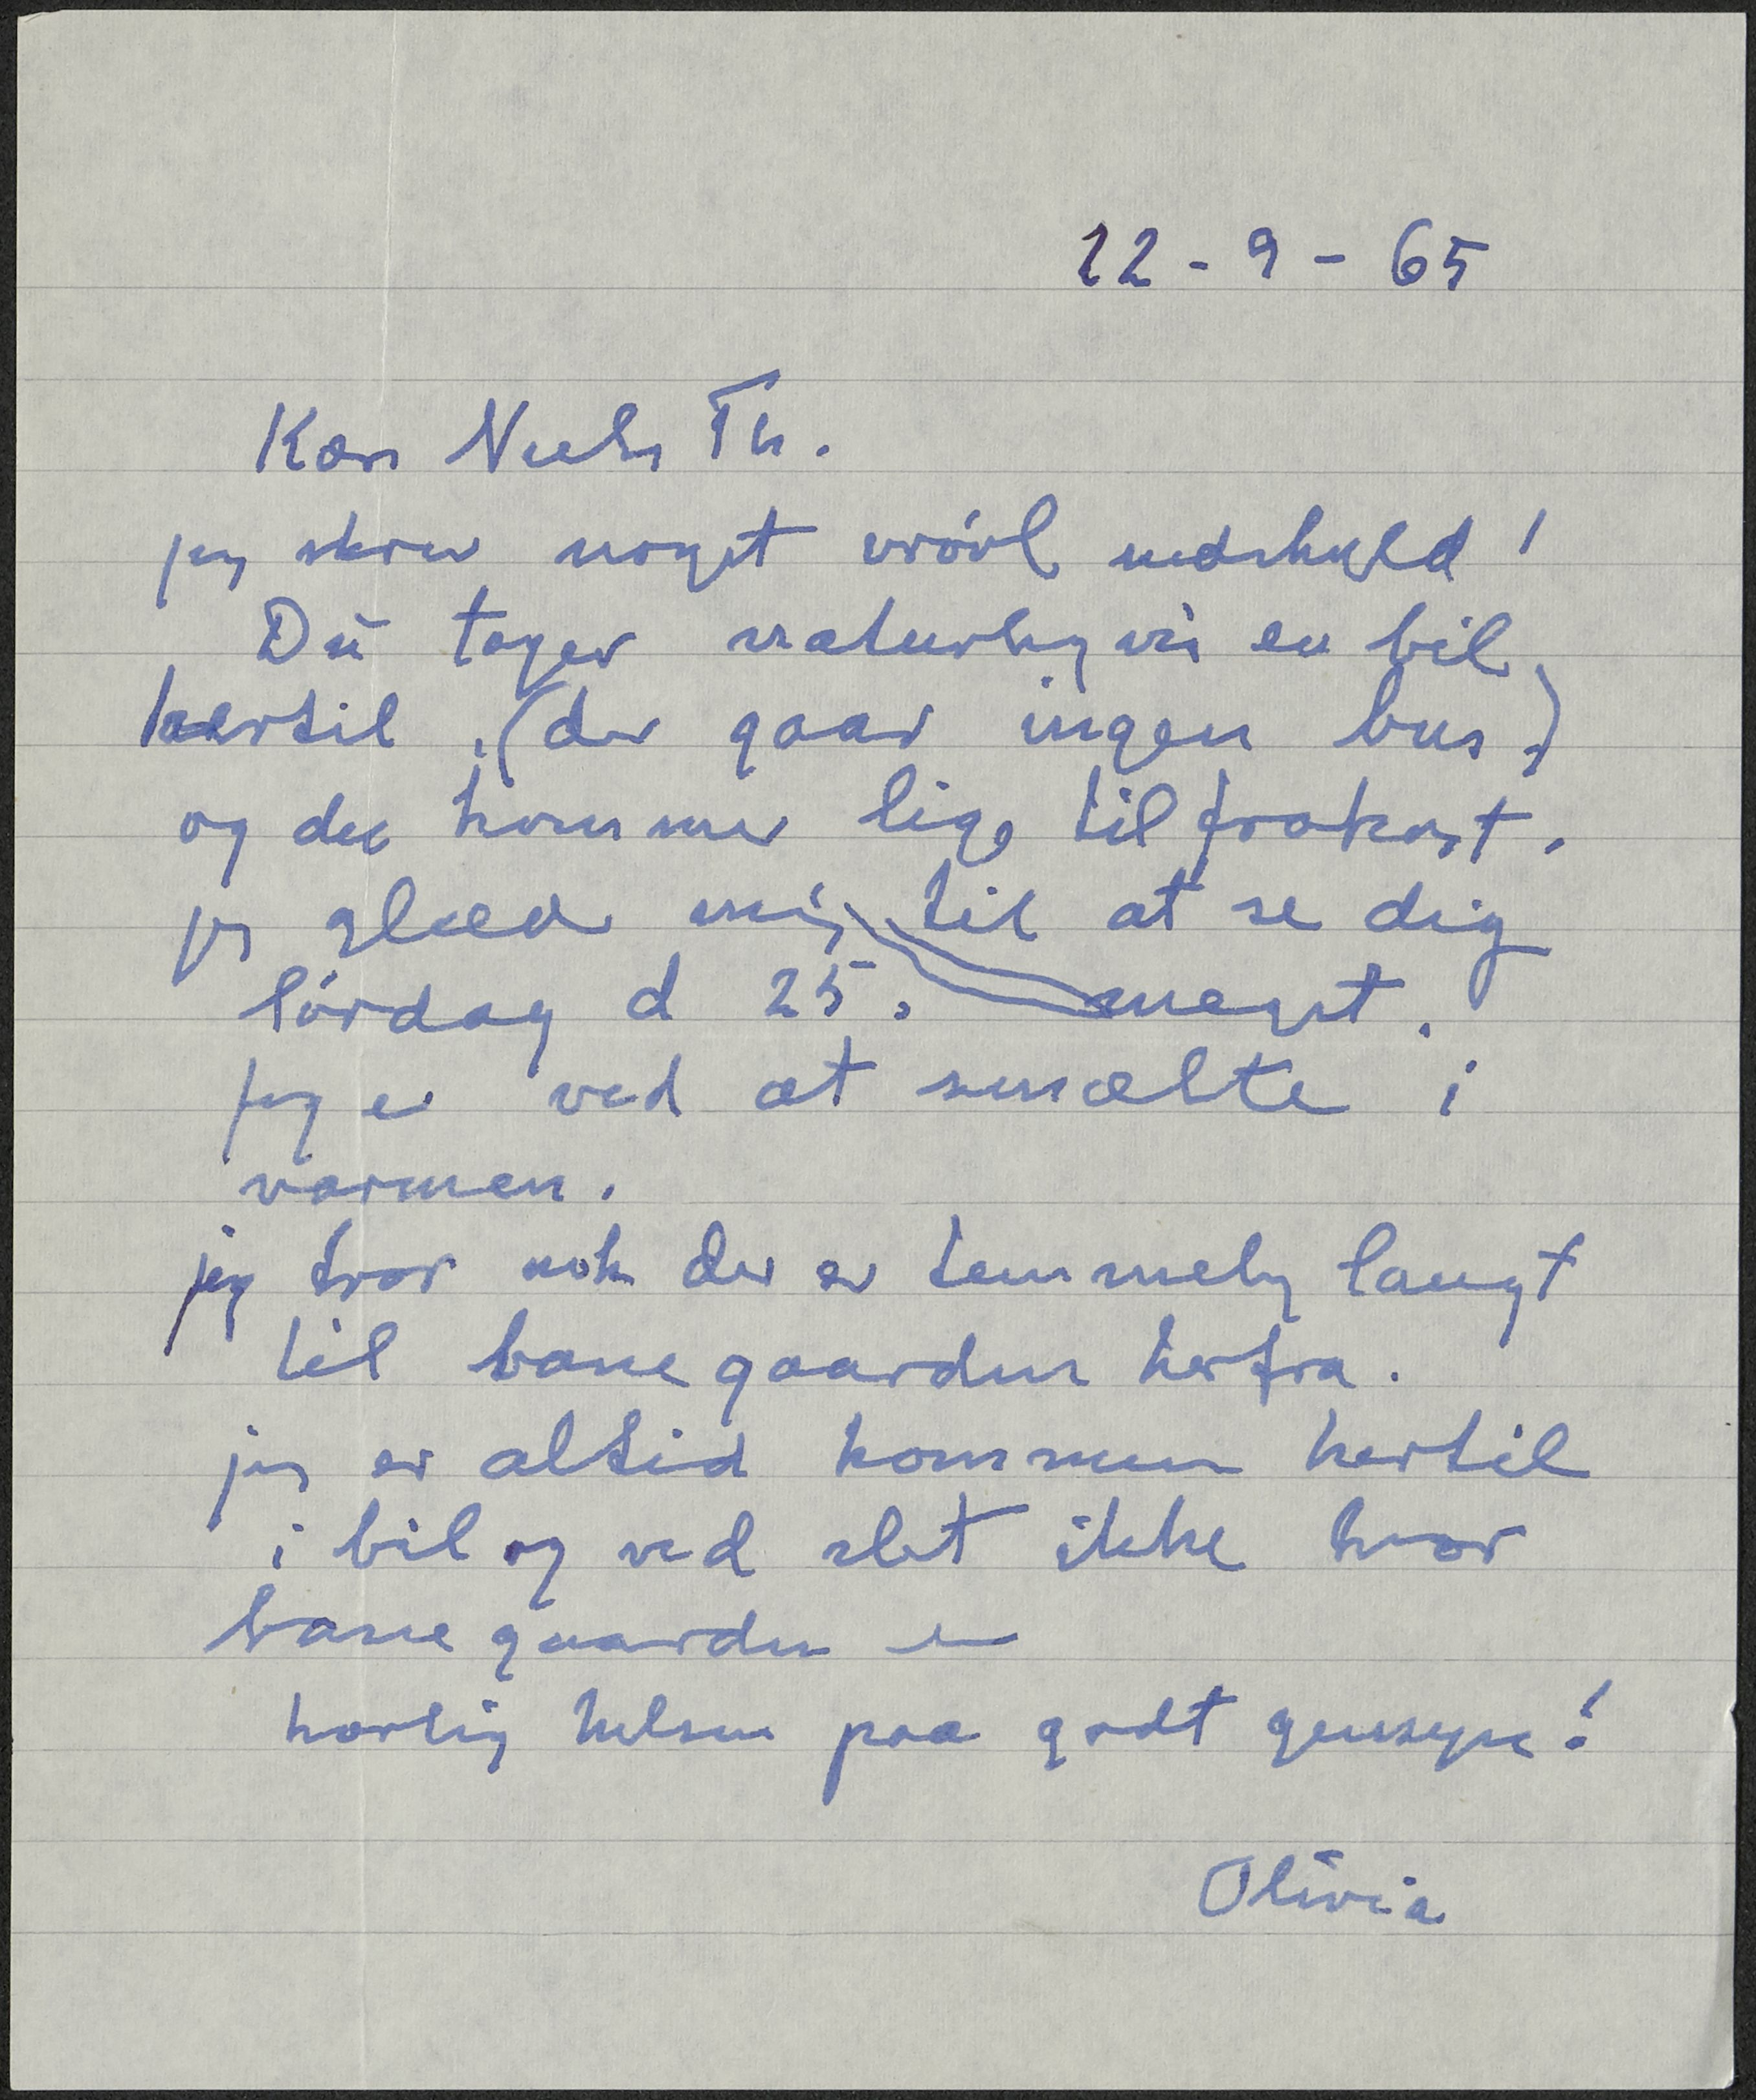 22 - 9 - 65
Kære Niels Th.
jeg skrev noget vrøvl undskyld!
Du tager naturligvis en bil
hertil. (der gaar ingen bus.)
og du kommer lige til frokost.
jeg glæder mig til at se dig
lørdag d 25. meget.
Jeg er ved at smælte i
varmen.
jeg tror nok der er temmelig langt
til banegaarden herfra.
jeg er altid kommen hertil
i bil og ved slet ikke hvor
banegaarden er
kærlig hilsen paa godt gensyn!
Olivia